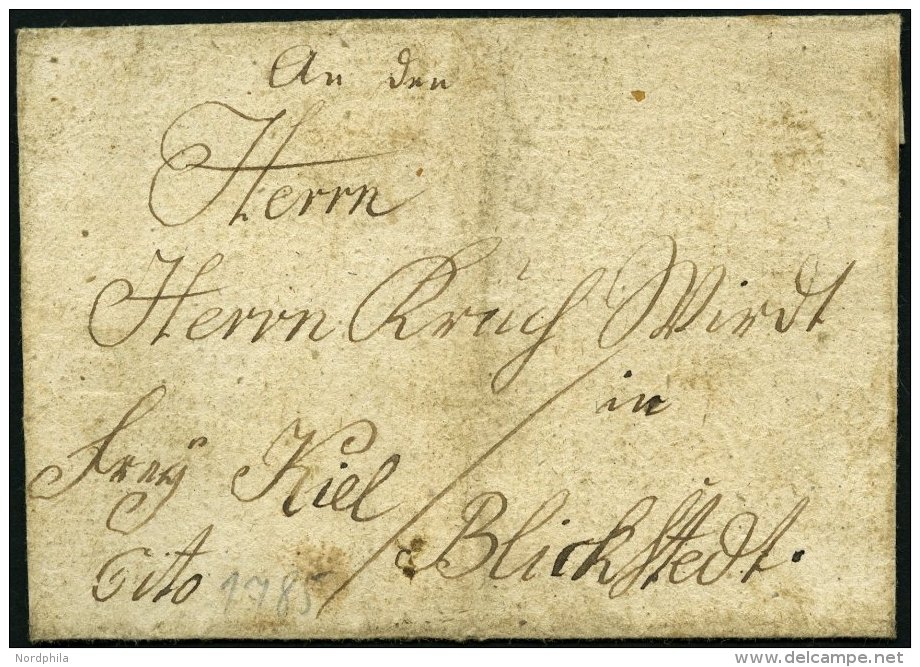 An den
Herrn
Herrn Kruch Wirdt
in
Freÿ Kiel
Blickstedt.
Cito 1785
Nordphila
delcampe.net